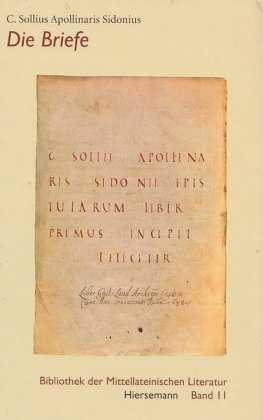 C. Sollius Apollinaris Sidonius
Die Briefe
C SOLLII APOLLINA
RIS SIDONII EPIS
TULARUM LIBER
PRIMUS INCIPIT
FELICITER
Liber Guil: Laud Archiepi Cant:
Bibliothek der Mittellateinischen Literatur
Hiersemann Band 11